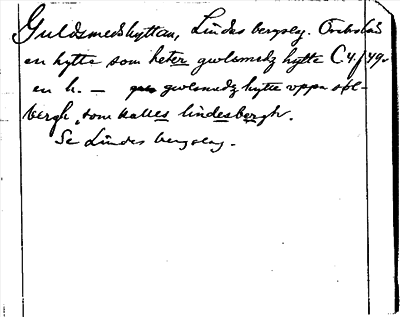 Guldsmedshyttan, Lindes bergslag. Örebro län
en hytte som heter gwlsmedz hytte C 4. f 49v
en h. — gwlsmedz hytte vppa
bergh, som kalles lindesbergh.
Se Lindes bergslag.